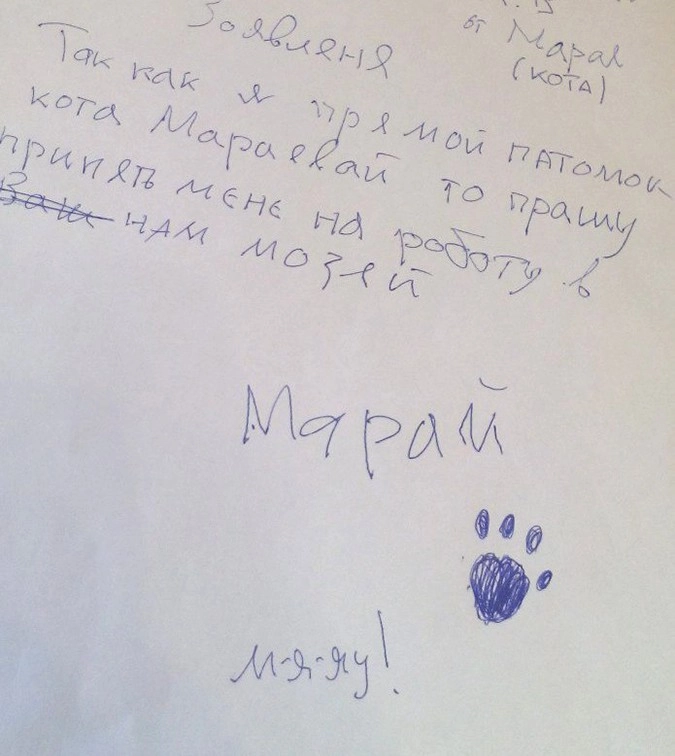 Зоявленя
от Марая
(КОТА)
Так как я прямой патомок
кота Мараевай то прашу
принять мене на роботу в
нам мозей
Марай
м-я-яу!